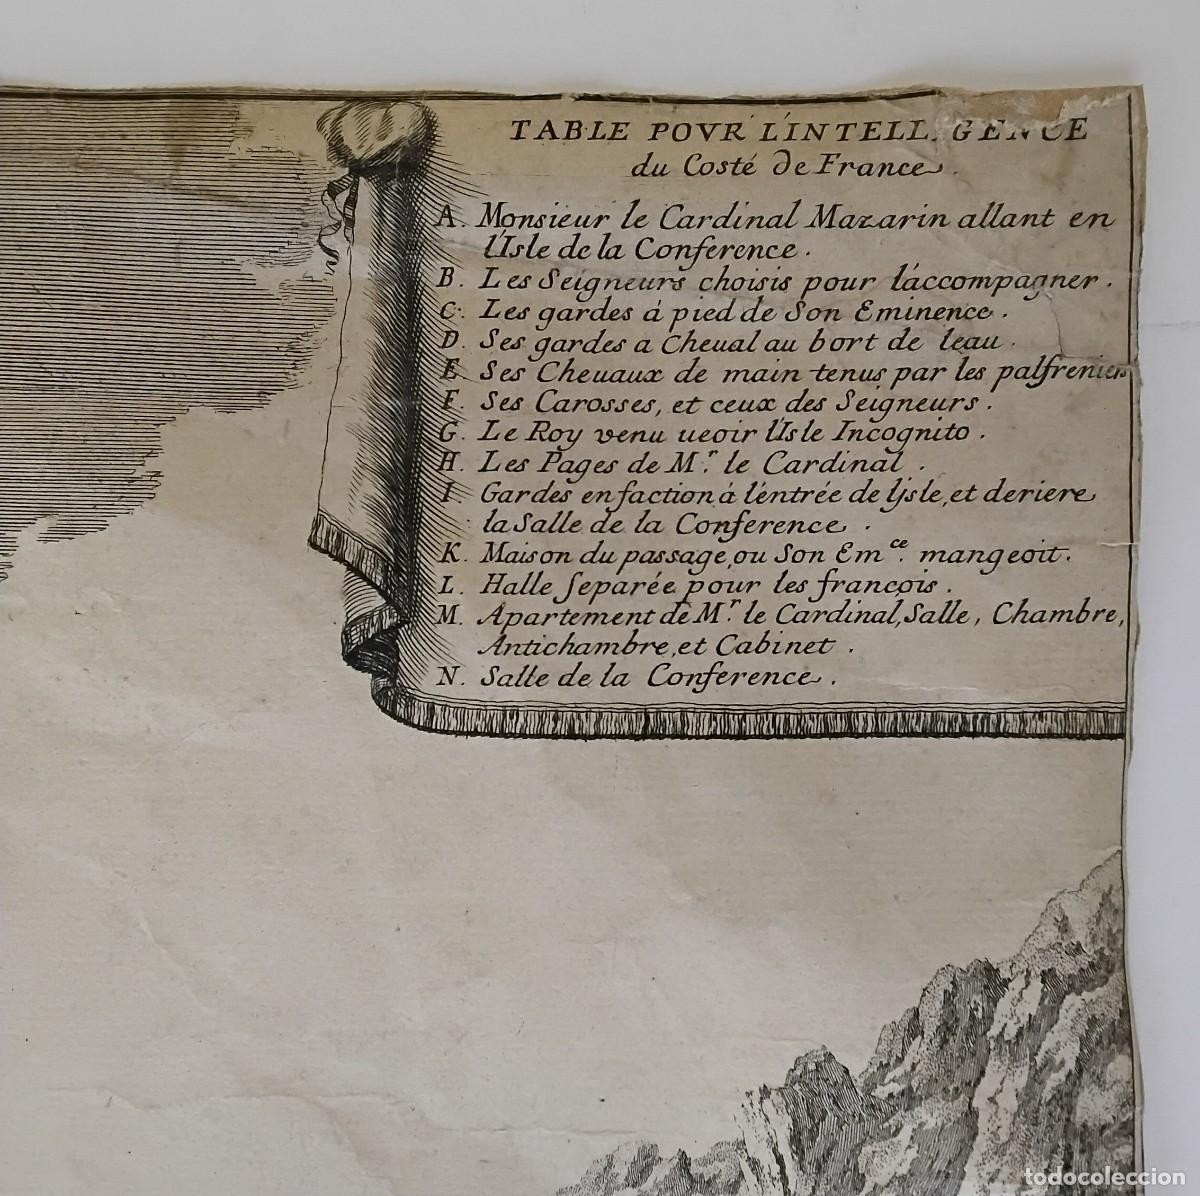 TABLE POVR L'INTELL. GENCE
du Costé de France.
A. Monsieur le Cardinal Mazarin allant en
l'Isle de la Conference.
B. Les Seigneurs choisis pour l'accompagner.
C. Les gardes á pied de Son Eminence.
D. Ses gardes a Cheual au bort de leau.
E. Ses Cheuaux de main tenus par les palfreniers
F. Ses Carosses, et ceux des Seigneurs.
G. Le Roy venu ueoir l'Isle Incognito.
H. Les Pages de Mr. le Cardinal.
I. Gardes en faction á l'entrée de l'jsle, et deriere
la Salle de la Conference.
K. Maison du passage, ou Son Emce. mangeoit.
L. Halle separée pour les françois.
M. Apartement de Mr. le Cardinal, Salle, Chambre,
Antichambre, et Cabinet.
N. Salle de la Conference.
todocoleccion